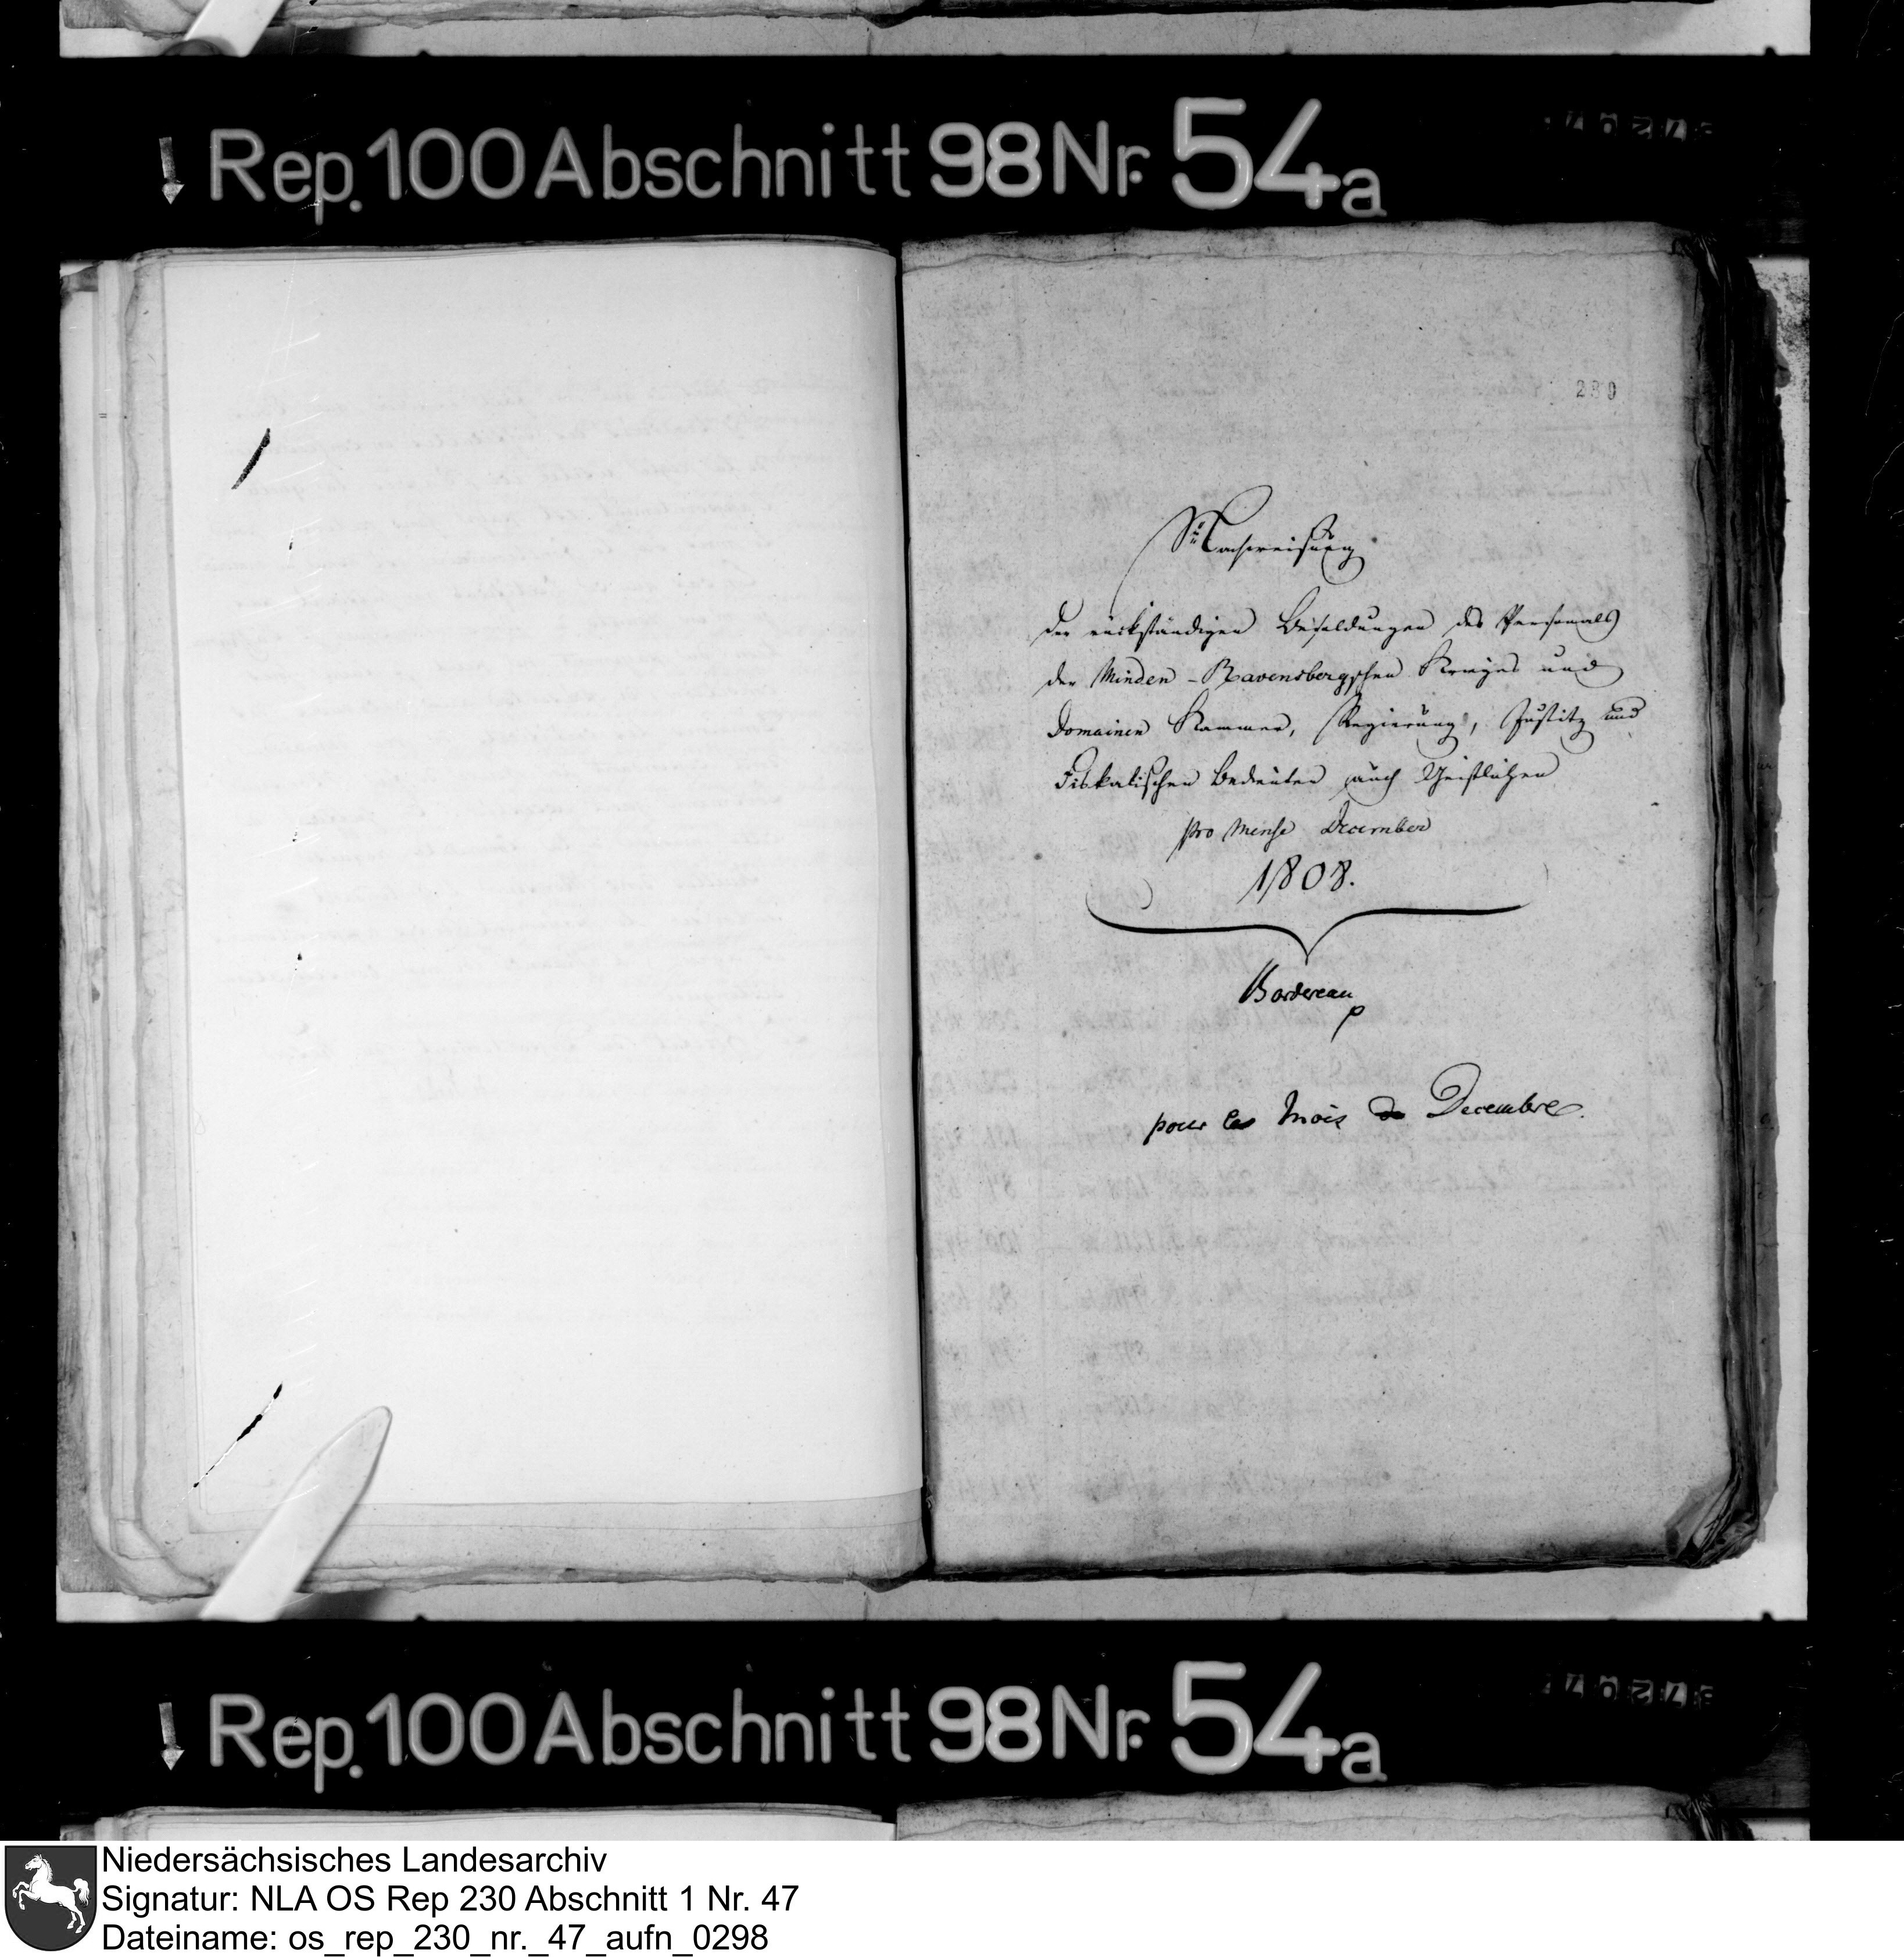 Rep. 100 Abschnitt 98 Nr. 54a
280
Nachweisung
der rückständigen Besoldungen des Personals
der Minden-Ravensbergschen Krieges und
Domainen Kammer, Regierung, Justitz und
Fiskalischen Bedienten auch Geistlichen
pro Mense December
1808.
Bordereau
pour le Mois de Decembre.
Rep. 100 Abschnitt 98 Nr. 54a
Niedersächsisches Landesarchiv
Signatur: NLA OS Rep 230 Abschnitt 1 Nr. 47
Dateiname: os_rep_230_nr._47_aufn_0298